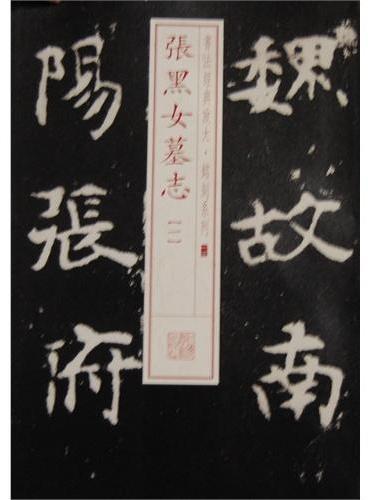 魏故南
書法經典放大·銘刻系列
張黑女墓志【一】
陽張府